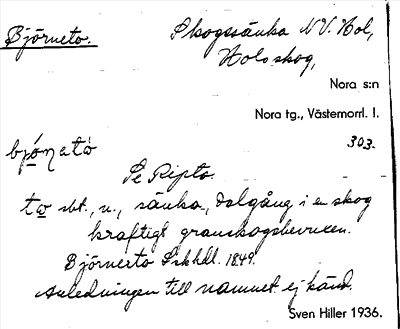 Björneto. Skogssänka N.V. Hol,
Holoskog,
Nora s:n
Nora tg., Västernorrl. l.
303.
bjó̱natò
Se Ripto.
to sbt., n., sänka, dalgång i en skog
kraftigt granskogsbevuxen.
Björnerto Skhdl. 1849.
Anledningen till namnet ej känd.
Sven Hiller 1936.